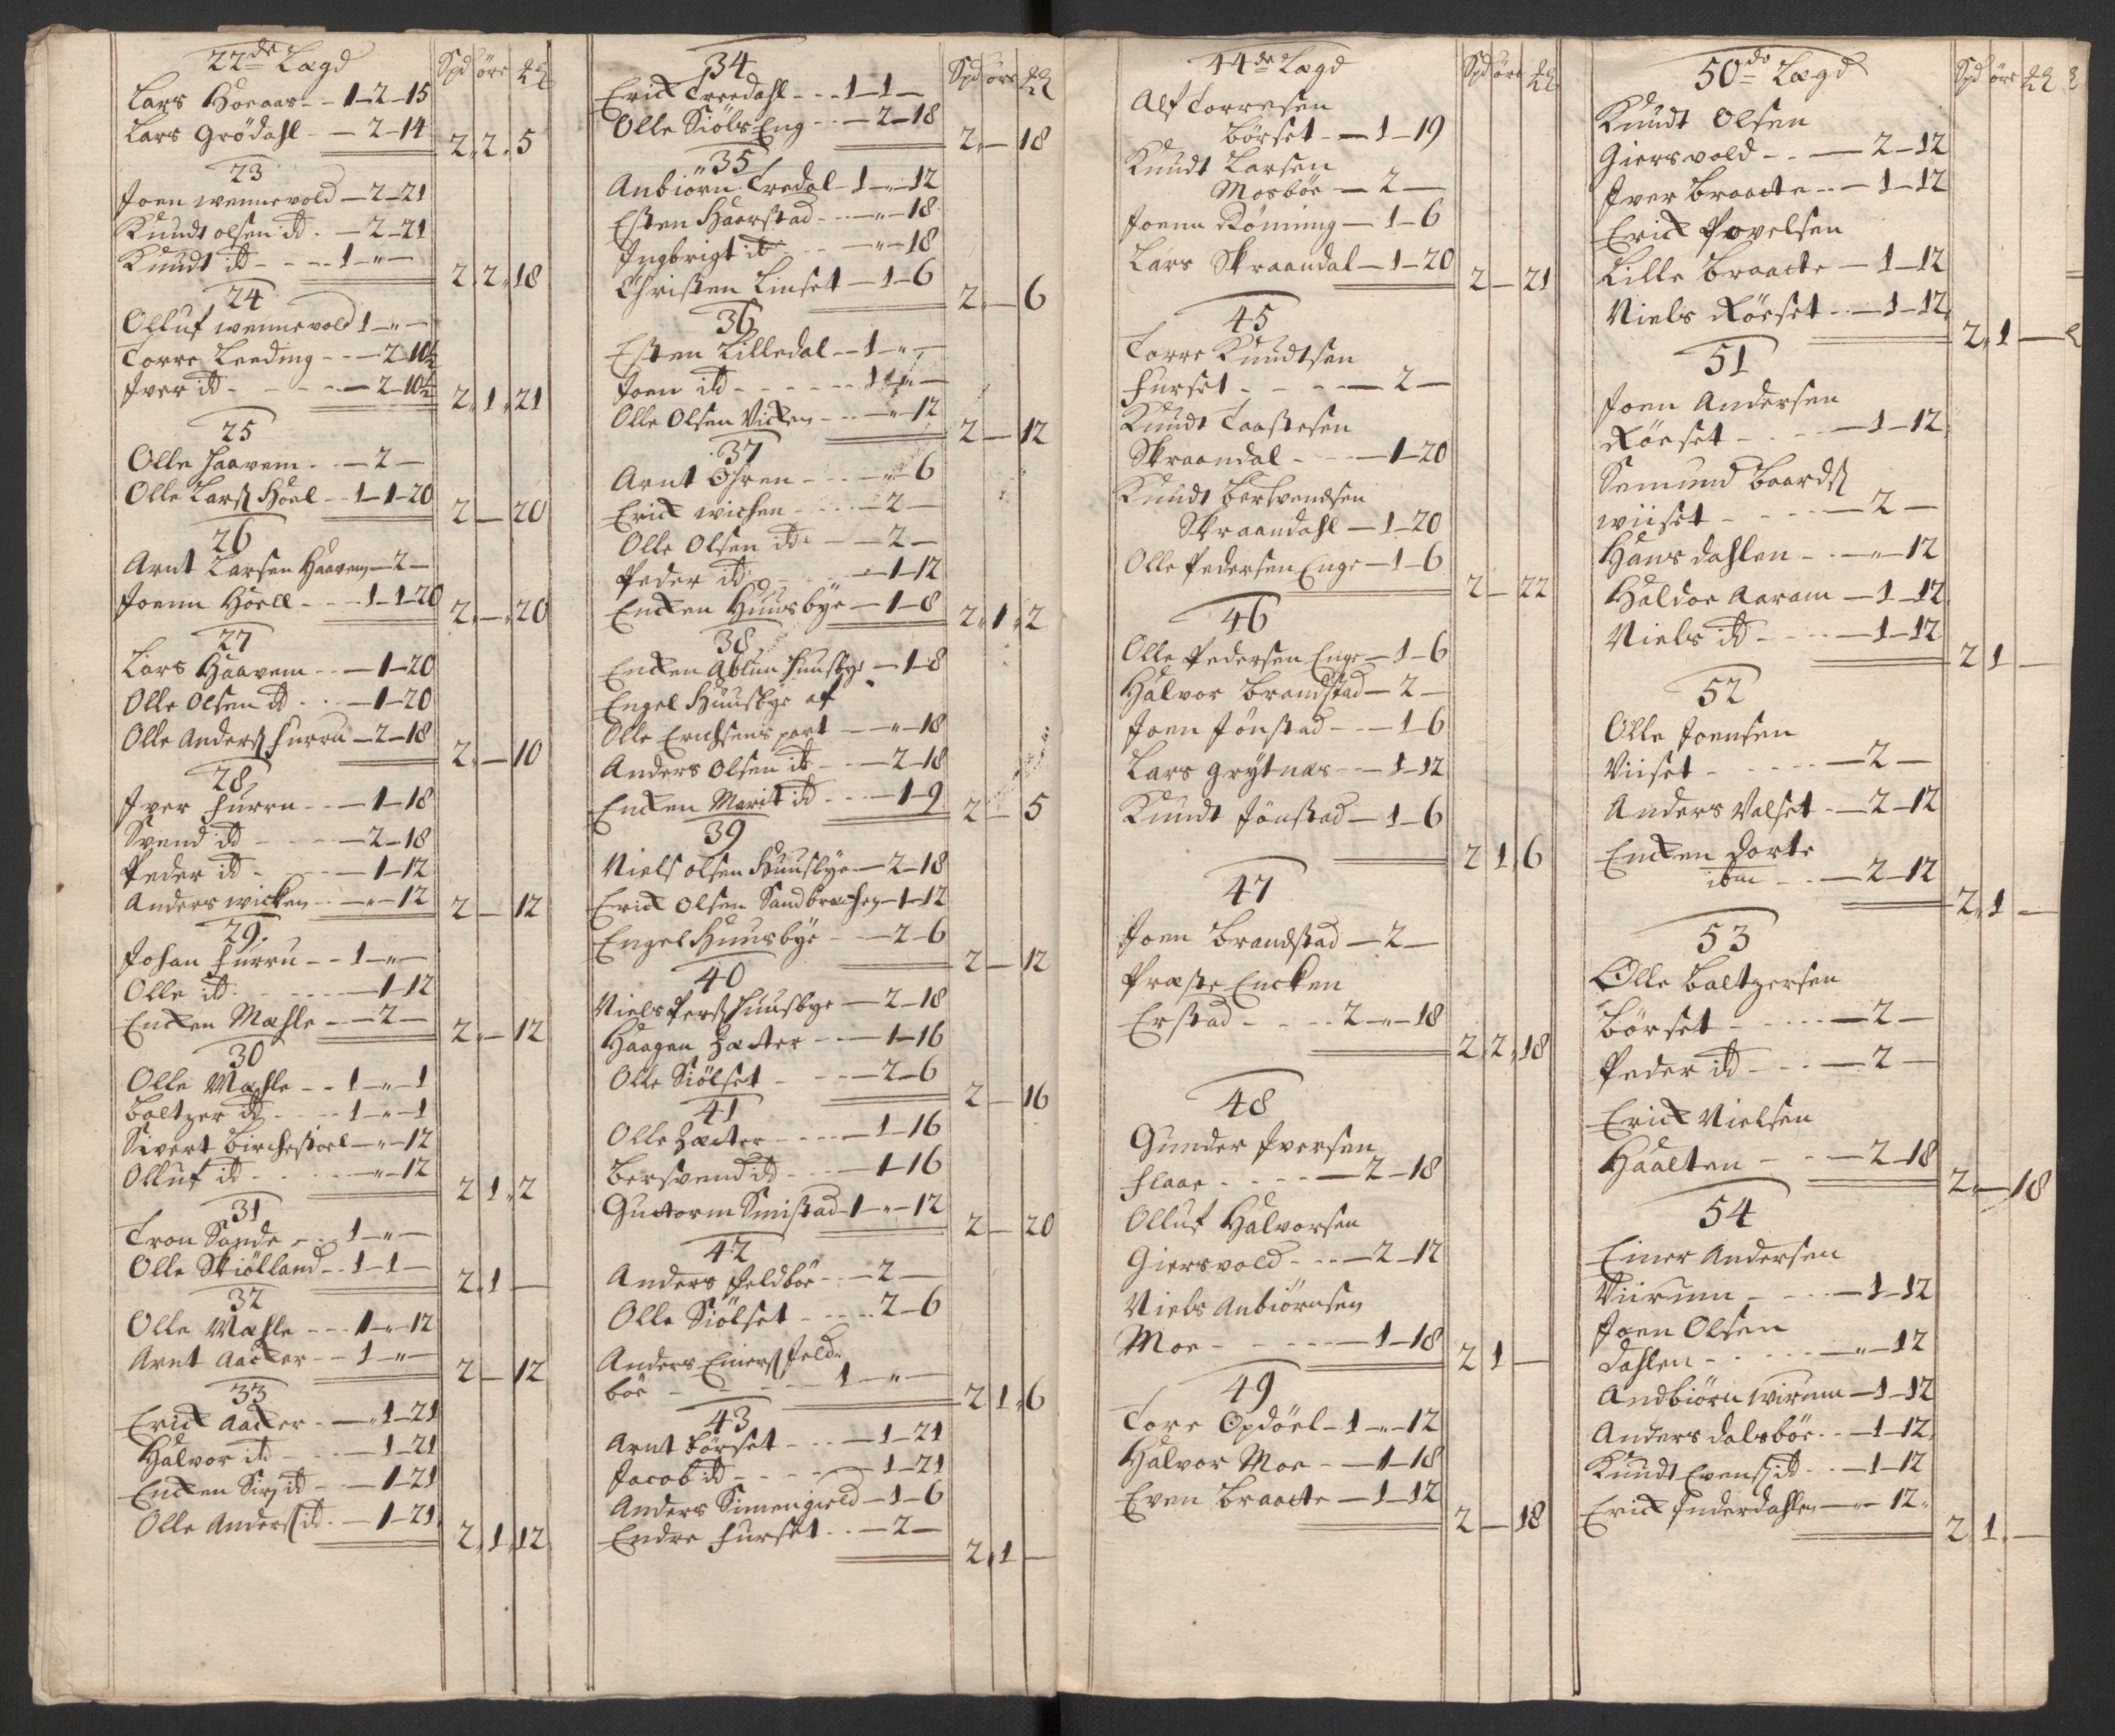 22de Lægd
Spd öre 
Lars Hoeaas - - 1-2-15
Lars Grödahl - - 2-14
2. 2. 5
23
Joen wennevold - 2-21
Knudt olsen id - 2-21
Knudt id - - - 1-"-
2. 2. 18
24
Olluf wennevold 1-"-
Torre Leeding - - 2-10½
Jver id - - - - 2-10½
2. 1. 21
25
Olle Haavem - - 2-
Olle Larsß Hoel - 1-1-20
2 - 20
26
Arnt Larsen Haavem - 2-
Joenn Höell - - - 1-1-20
2. - 20
27
Lars Haavem - - 1-20
Olle Olsen id - - 1-20
Olle Andersß furru - 2-18
2. - 10
28
Jver furru - - 1-18
Svend id - - - 2-18
Peder id - - - 1-12
Anders wicken - - "-12
2 - 12
29
Johan furru - - 1-"-
Olle id - - - - 1-12
Encken Mæhle - - 2-
2. - 12
30
Olle Mæhle - - 1-"-1
Baltzer id - - - 1-"-1
Sivert Birchestoel - "-12
Olluf id - - - - "-12
2 1. 2
31
Tron Sande - - 1-"-
Olle Skiölland - - 1-1-
2. 1 -
32
Olle Mæhle - - - 1-"-12
Arnt Aacker - - 1-"-
2 - 12
33
Erick Aacker - - 1-21
Halvor id - - - 1-21
Encken Siri id - - 1-21
Olle Andersß id - - 1-21
2. 1. 12
34
Spd öre 
Erick Treedahl - - - 1-1-
Olle Siöls Eng - - - 2-18
2. - 18
35
Anbiörn Tredal - 1-"-12
Esten Haarstad - - - "-18
Jngbrigt id - - - "-18
Christen Linset - 1-6
2. - 6
36
Esten Lilledal - - 1-"-
Joen id - - - - - 1-"-
Olle Olsen Vicken - - - "-12
2 - 12
37
Arnt Öhren - - - - "-6
Erick wichen - - - - 2-
Olle Olsen id - - 2-
Peder id - - - 1-12
Encken Huusbye - 1-8
2. 1. 2
38
Encken huusbye - 1-8
Engel Huusbye af
Olle Erichsens part - "-18
Anders Olsen id - - 2-18
Encken Marit id - - 1-9
2 - 5
39
Niels olsen Huusbye - 2-18
Erick Olsen Sandbrachen - 1-12
Engel Huusbye - - 2-6
2 - 12
40
Niels Persß huusbye - 2-18
Haagen Zætter - - - 1-16
Olle Siölset - - - 2-6
2 - 16
41
Olle Zætter - - - - 1-16
Bersvend id - - - 1-16
Guttorm Smistad - 1-"-12
2 - 20
42
Anders feldböe - - 2-
Olle Siölset - - - - 2-6
Anders Einersß feld-
böe - - - - - 1-"-
2 1. 6
43
Arnt Börset - - - 1-21
Jacob id - - - - 1-21
Anders Simengield - 1-6
Endre furset - - 2-
2. 1 -
44de Lægd
Spd öre 
Alf Torresen
Börset - - 1-19
Knudt Larsen
Mosböe - 2-
Joenn Rönning - 1-6
Lars Skraandal - 1-20
2 - 21
45
Torre Knudtsen
furset - - - - 2-
Knudt Taastesen
Skraandal - - - 1-20
Knudt Bersvendsen
Skraandahl - 1-20
Olle Pedersen Enge - 1-6
2 - 22
46
Olle Pedersen Enge - 1-6
Halvor Brandstad - 2-
Joen Jönstad - - - 1-6
Lars grytnæs - - 1-12
Knudt Jönstad - 1-6
2 1. 6
47
Joen Brandstad - 2-
Præste Encken
Erstad - - - - 2-"-18
2. 2. 18
48
Gunder Jversen
flaae - - - - 2-18
Olluf Halvorsen
Giersvold - - - 2-12
Niels Anbiörnsen
Moe - - - - - 1-18
2 1 -
49
Tore Opdöel - 1-"-12
Halvor Moe - - - 1-18
Even Braatte - 1-12
2 - 18
50de Lægd
Spd öre 
Knudt Olsen
Giersvold - - - 2-12
Jver Braatte - - 1-12
Erick Povelsen
Lille Braatte - 1-12
Niels Röeset - - 1-12
2. 1 -
51
Joen Andersen
Röeset - - - - 1-12
Semund Baardsß
wiiset - - - - 2-
Hans dahlen - - - "-12
Haldoe Aaram - 1-12
Niels id - - - - 1-12
2 1 -
52
Olle Joensen
Viiset - - - - 2-
Anders Valset - 2-12
Encken Dorte
ibm - - - 2-12
2. 1 -
53
Olle Baltzersen
Börset - - - - 2-
Peder id - - - 2-
Erick Nielsen
Haalten - - - 2-18
2. - 18
54
Einer Andersen
Viirum - - - - 1-12
Joen Olsen
dahlen - - - - "-12
Andbiörn wirum - 1-12
Anders dalsböe - - 1-12
Knudt Evensß id - - 1-12
Erick Jnderdahlen - "-12
2. 1. -